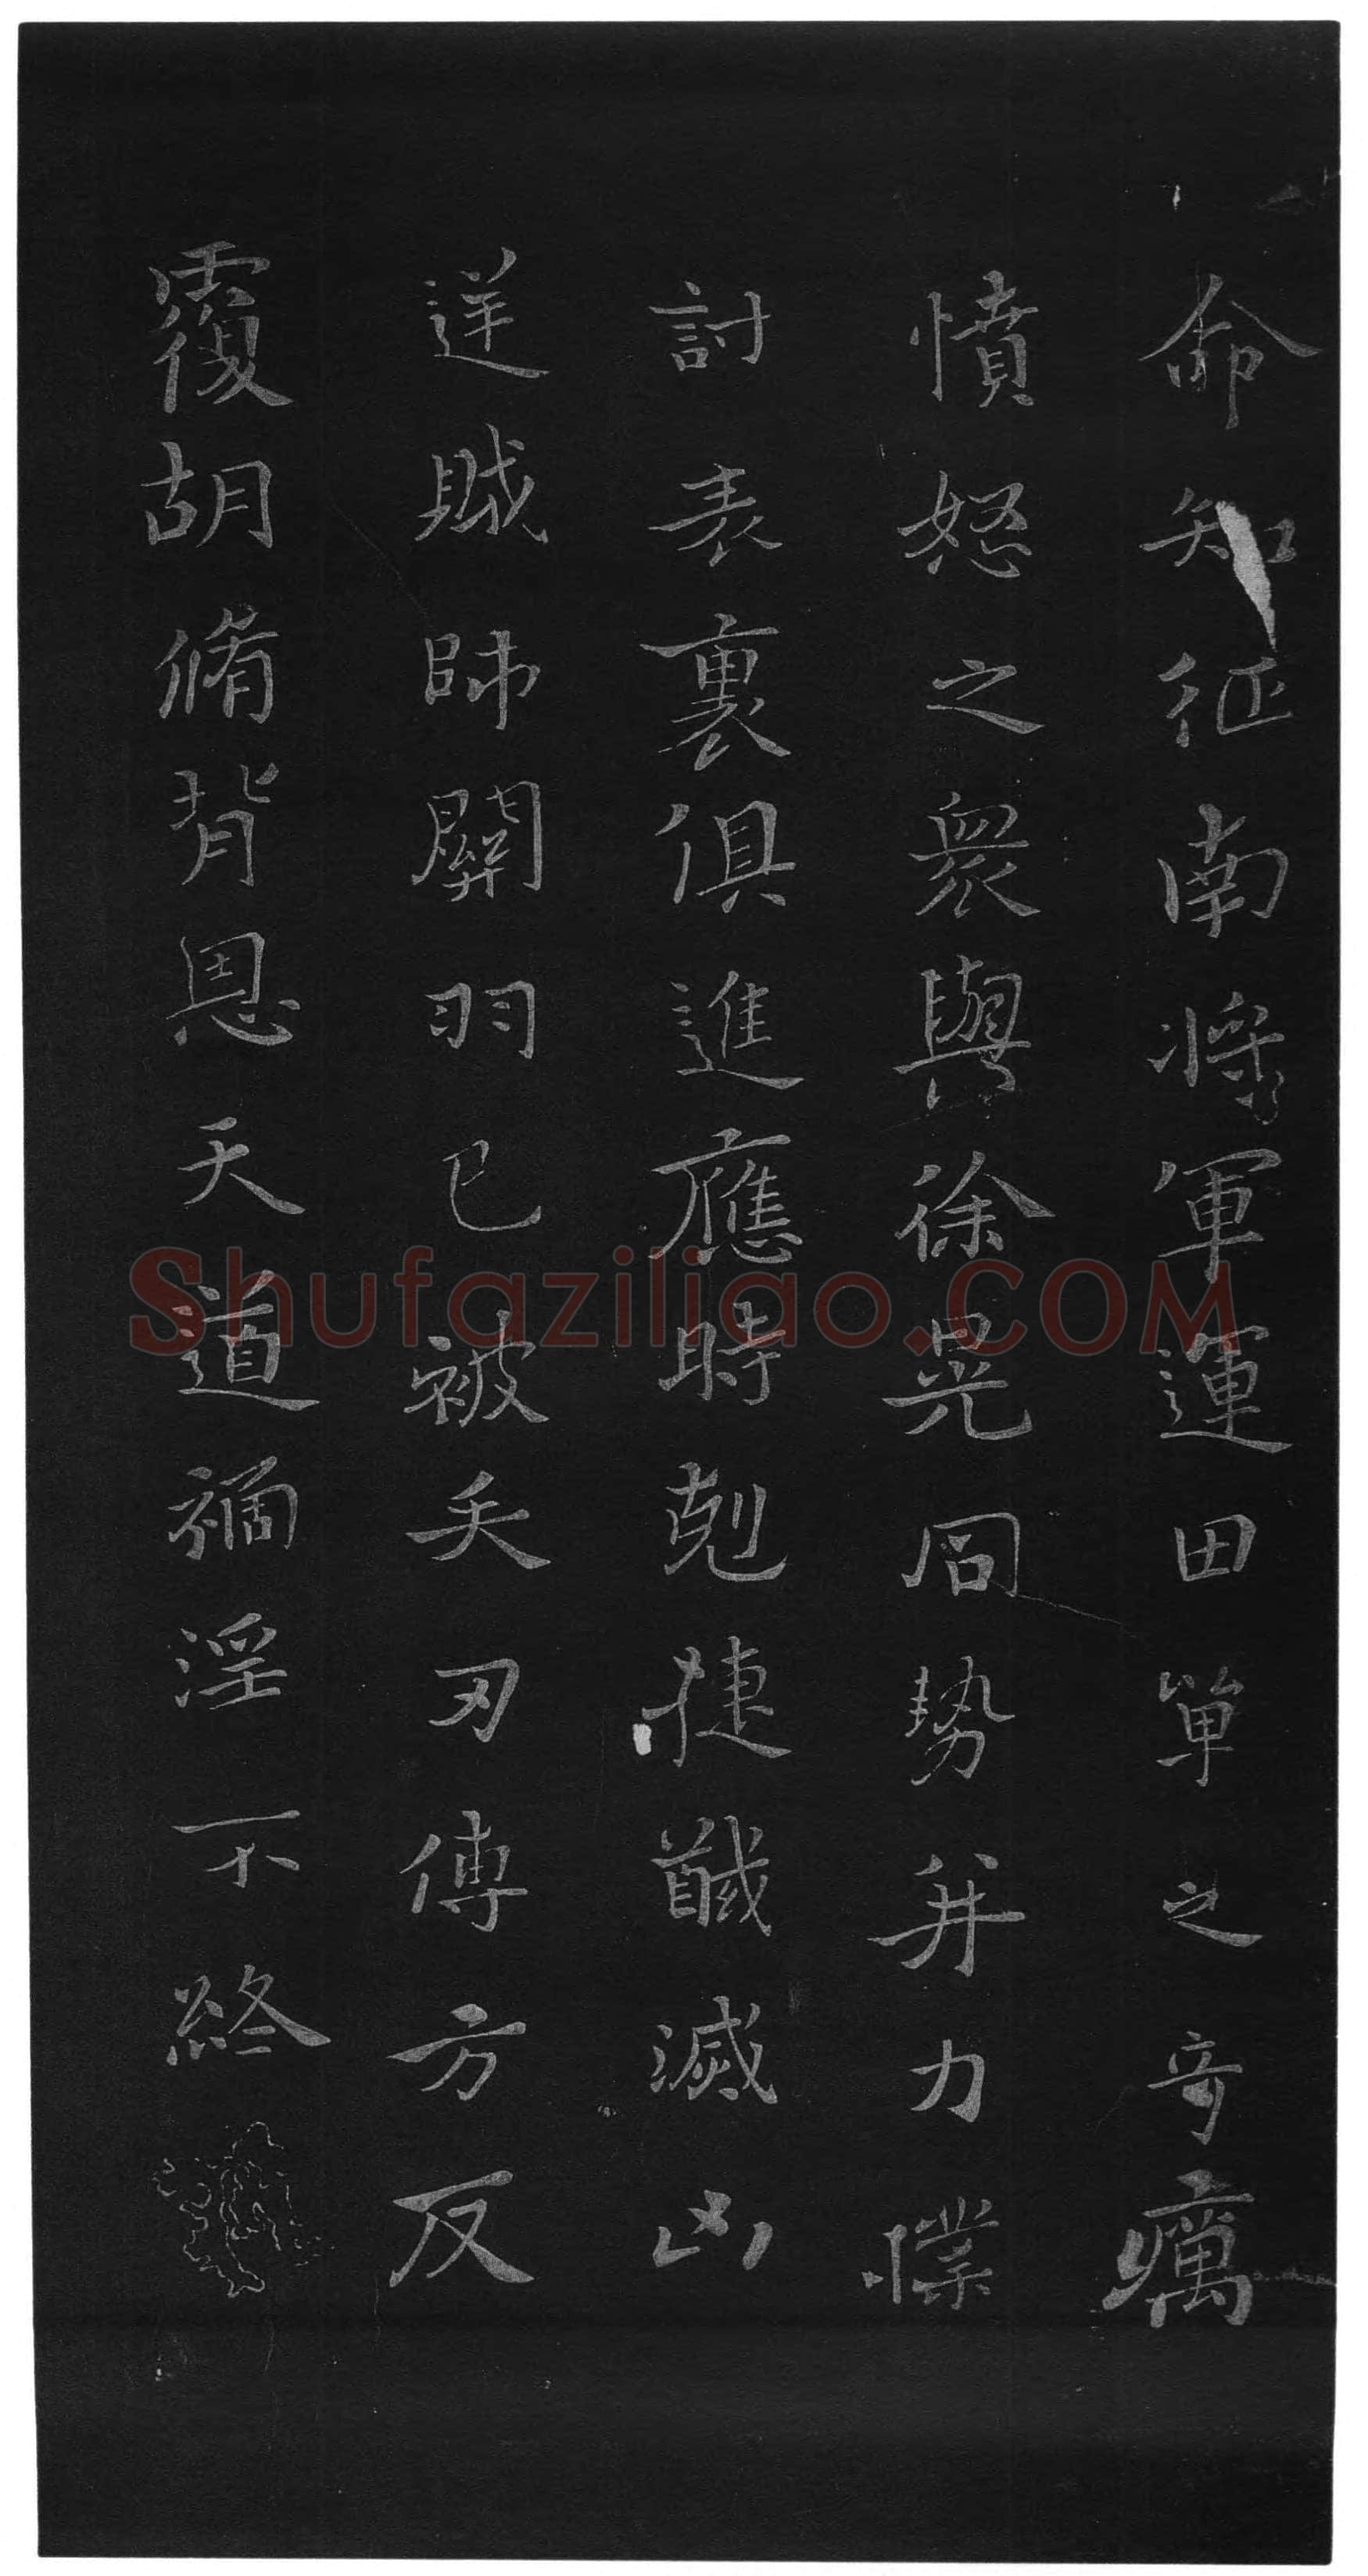 命知征南將軍運田單之奇癘
憤怒之衆與徐晃同勢并力撲
討表裏俱進應時剋捷馘滅凶
逆賊帥關羽已被矢刃傅方反
覆胡脩背恩天道禍淫不終
Shufaziliao.COM